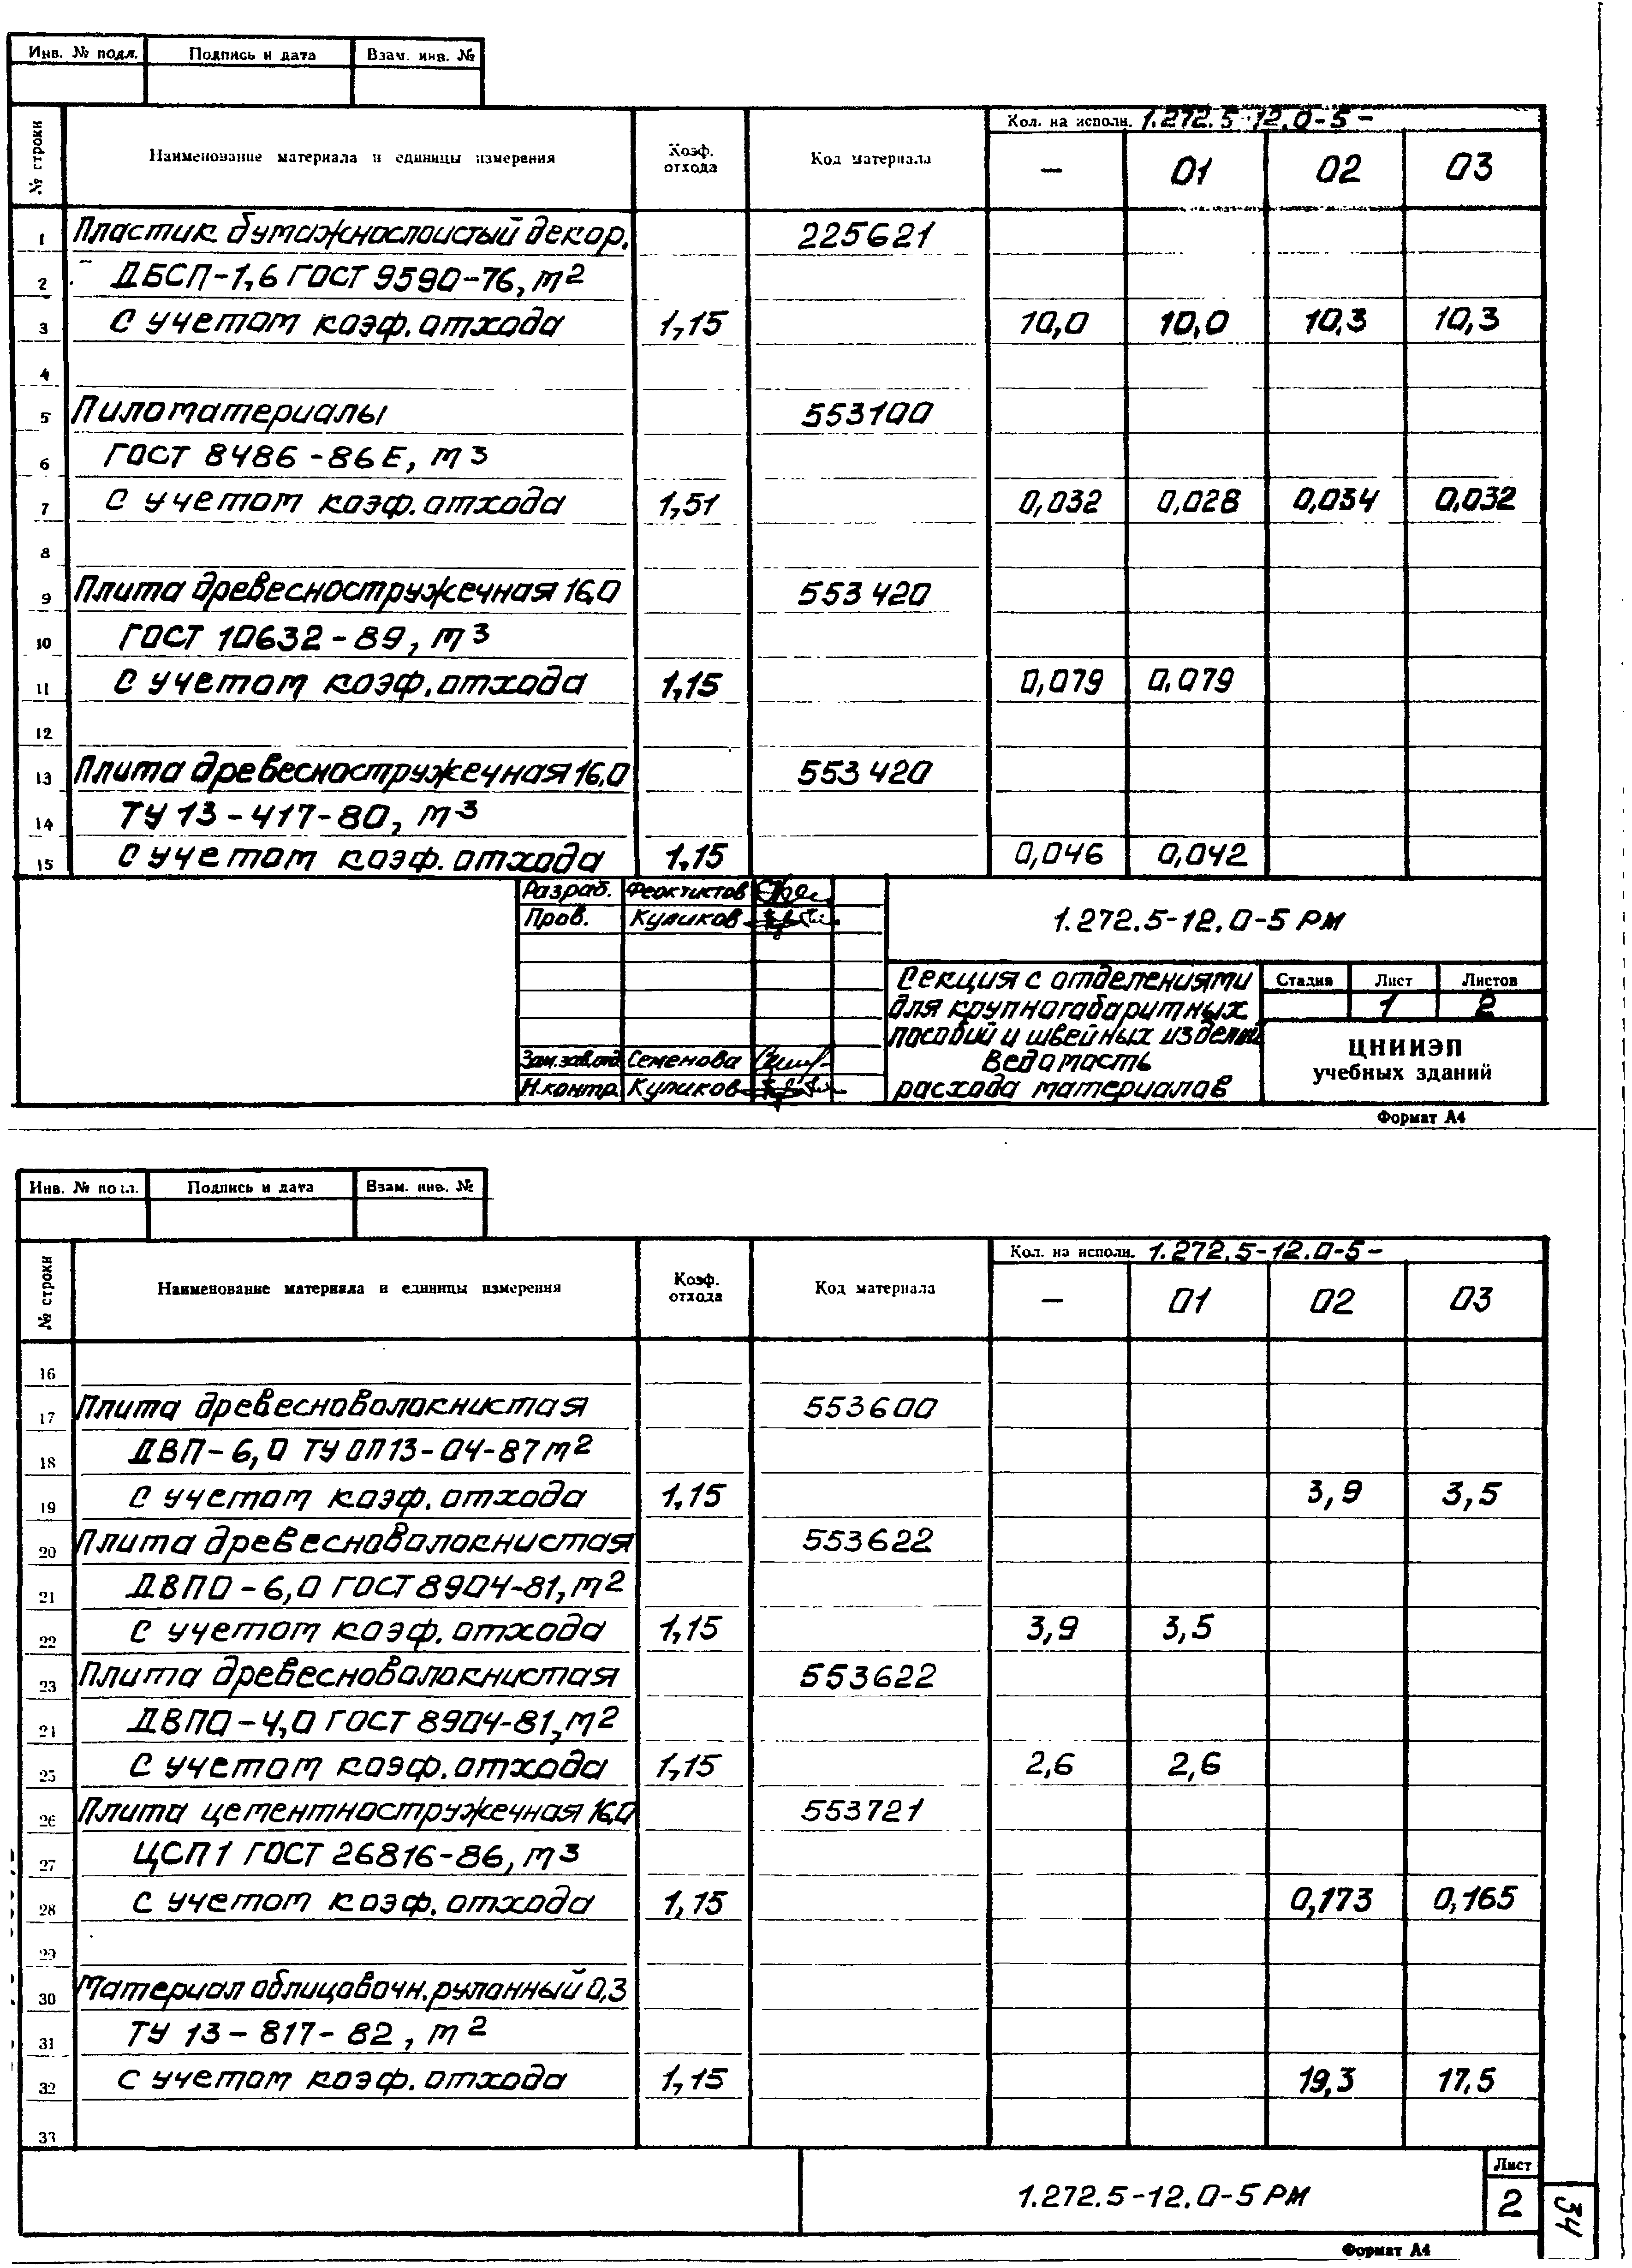 Инв. № подл. Подпись и дата Взам. инв. №
№ строки Наименование материала и единицы измерения Коэф. отхода Код материала Кол. на исполн. 1.272.5-12.0-5-
— 01 02 03
1 Пластик бумажнослоистый декор. 225621
2 ДБСП-1,6 ГОСТ 9590-76, м2
3 С учетом коэф. отхода 1,15 10,0 10,0 10,3 10,3
4
5 Пиломатериалы 553100
6 ГОСТ 8486-86Е, м3
7 С учетом коэф. отхода 1,51 0,032 0,028 0,034 0,032
8
9 Плита древесностружечная 16,0 553420
10 ГОСТ 10632-89, м3
11 С учетом коэф. отхода 1,15 0,079 0,079
12
13 Плита древесностружечная 16,0 553420
14 ТУ 13-417-80, м3
15 С учетом коэф. отхода 1,15 0,046 0,042
Разраб. Феоктистов
Пров. Куликов
Зам.зав.отд Семенова
Н.контр. Куликов
1.272.5-12.0-5 РМ
Секция с отделениями
для крупногабаритных
пособий и швейных изделий
Ведомость
расхода материалов
Стадия Лист Листов
1 2
ЦНИИЭП
учебных зданий
Формат А4
Инв. № подл. Подпись и дата Взам. инв. №
№ строки Наименование материала и единицы измерения Коэф. отхода Код материала Кол. на исполн. 1.272.5-12.0-5-
— 01 02 03
16
17 Плита древесноволокнистая 553600
18 ДВП-6,0 ТУ ОП13-04-87 м2
19 С учетом коэф. отхода 1,15 3,9 3,5
20 Плита древесноволокнистая 553622
21 ДВПО-6,0 ГОСТ 8904-81, м2
22 С учетом коэф. отхода 1,15 3,9 3,5
23 Плита древесноволокнистая 553622
24 ДВПО-4,0 ГОСТ 8904-81, м2
25 С учетом коэф. отхода 1,15 2,6 2,6
26 Плита цементностружечная 16,0 553721
27 ЦСП1 ГОСТ 26816-86, м3
28 С учетом коэф. отхода 1,15 0,173 0,165
29
30 Материал облицовочн. рулонный 0,3
31 ТУ 13-817-82, м2
32 С учетом коэф. отхода 1,15 19,3 17,5
33
1.272.5-12.0-5 РМ
Лист
2
34
Формат А4